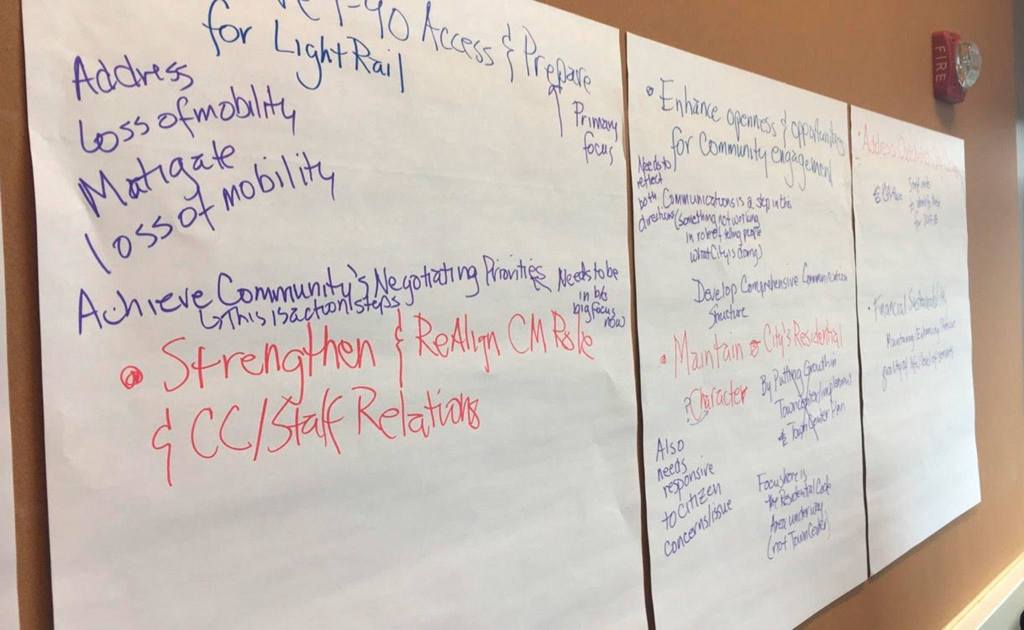 I-90 Access & Prepare
for Light Rail
Primary
focus
Address
Loss of mobility
Matigate
loss of mobility
Achieve Community's Negotiating Priorities
This is action steps
Needs to be
in b/c
big focus
now
• Strengthen & ReAlign CM Role
& CC/Staff Relations
• Enhance openness & opportunities
for Community engagement
Needs to
reflect
both
directions
Communications is a step in this
(Something not working
in role of telling people
what City is doing)
Develop Comprehensive Communication
Structure
• Maintain City's Residential
Character
?
By Putting Growth in
Town Center
Also
needs
responsive
to citizen
concerns/issue
Focus here is
the Residential Code
Area underway
(not Town Center)
• Address
• Financial Sustainability
FIRE